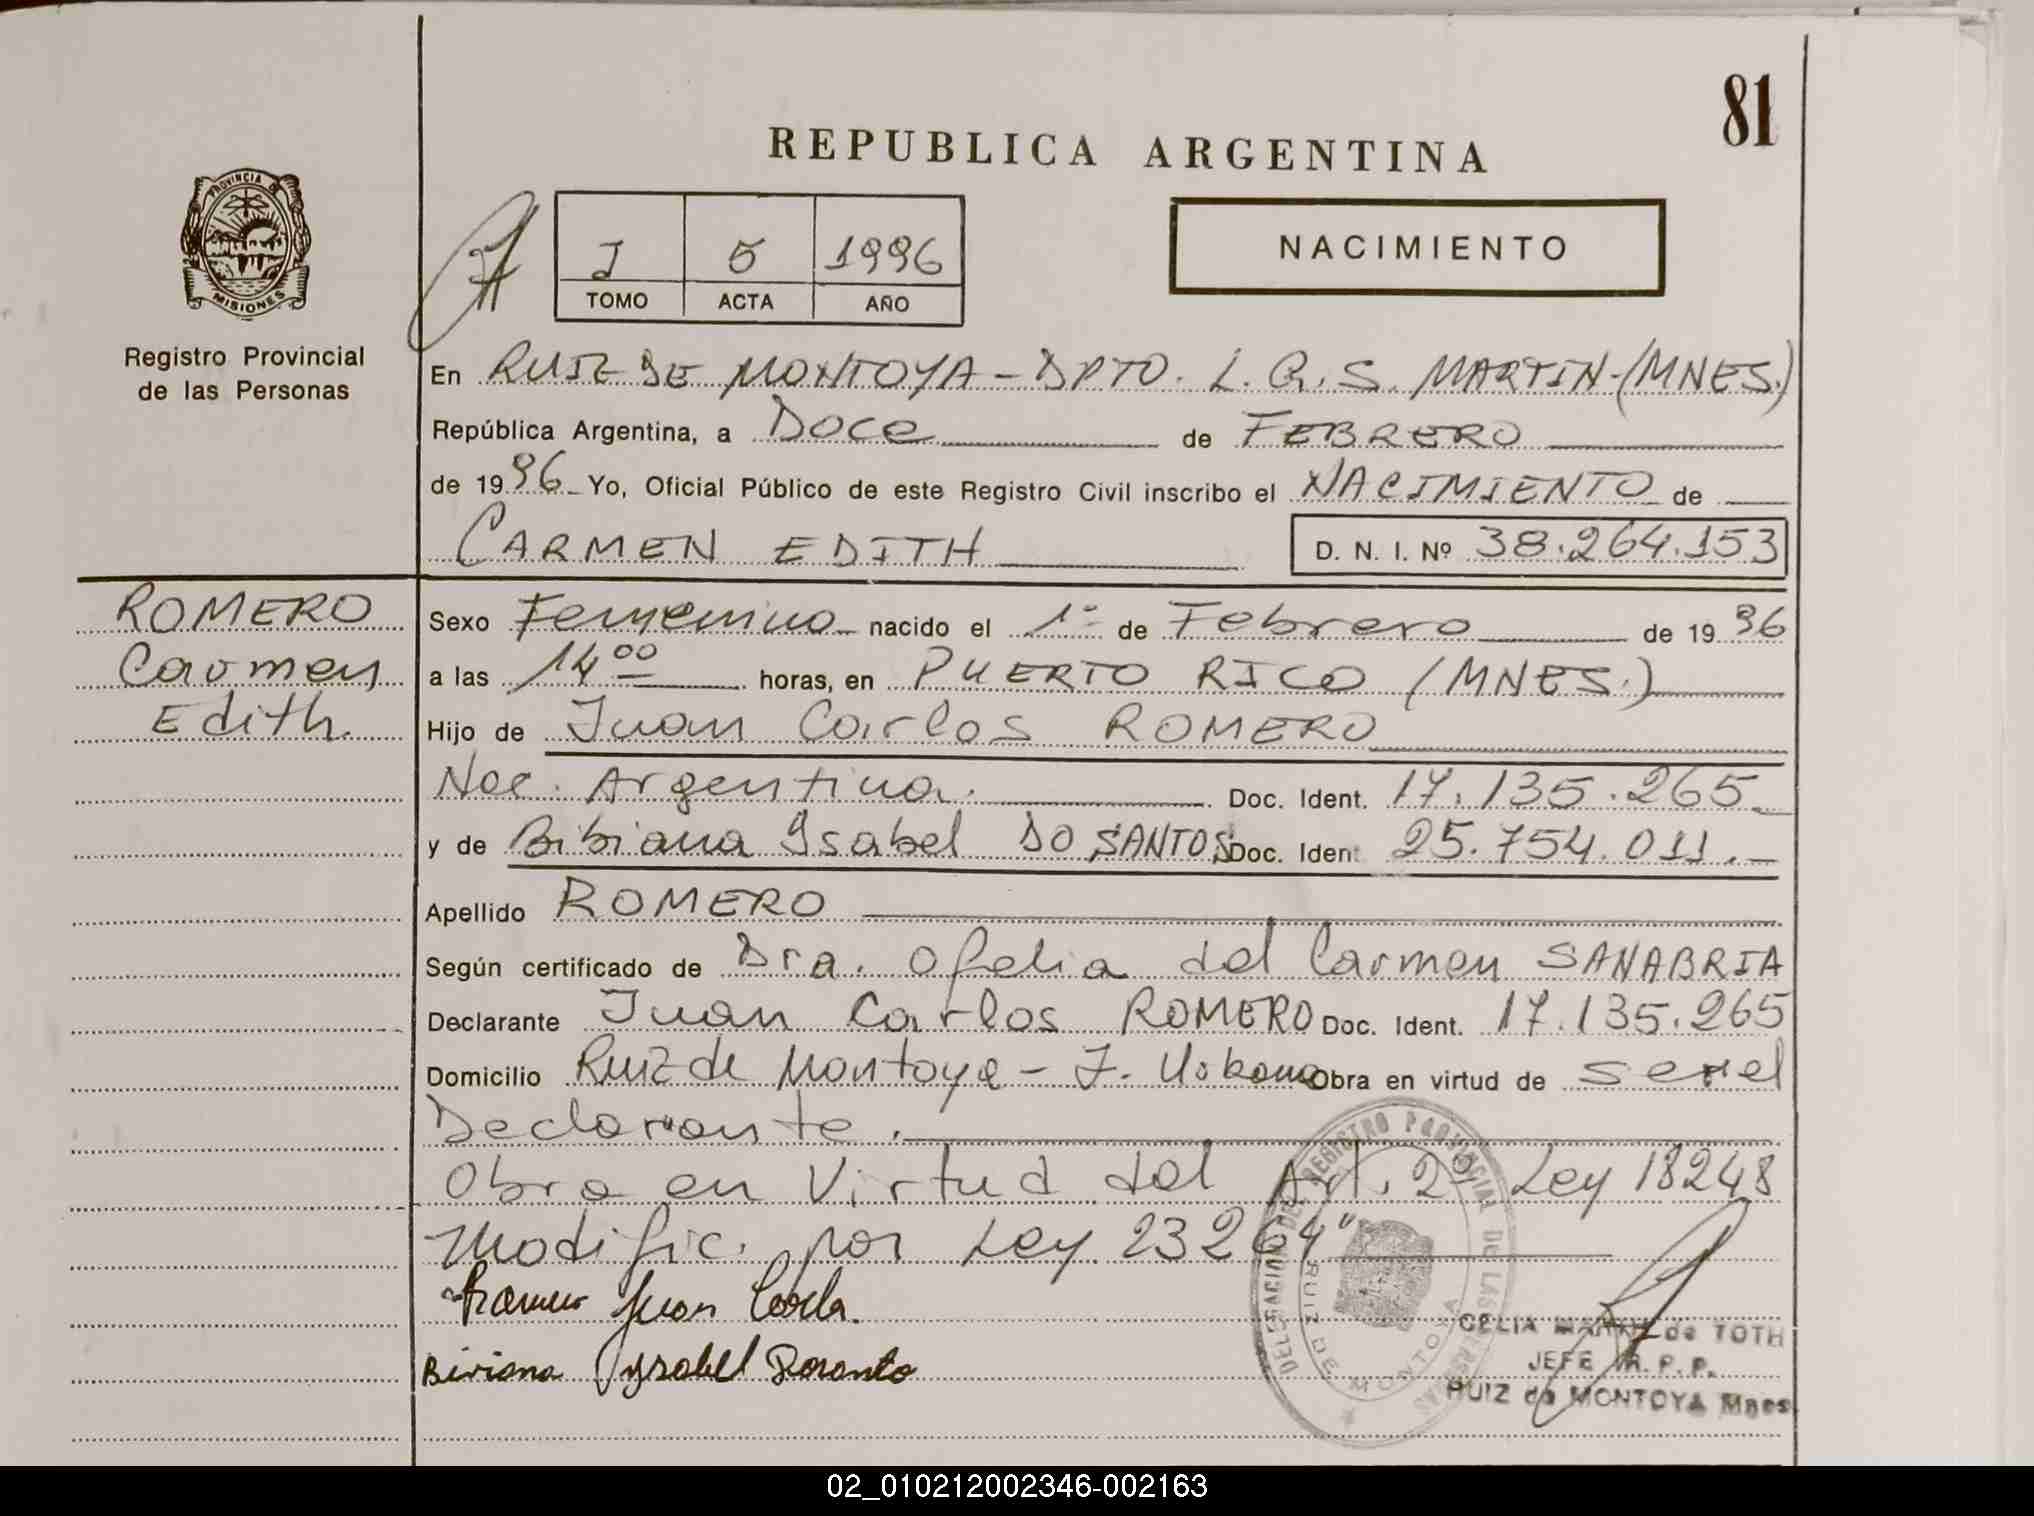 81
REPUBLICA ARGENTINA
PROVINCIA DE
MISIONES
Registro Provincial
de las Personas
I 5 1996
TOMO ACTA AÑO
NACIMIENTO
En RUIZ DE MONTOYA - DPTO. L. G. S. MARTIN - (MNES.)
República Argentina, a DOCE de FEBRERO
de 1996 Yo, Oficial Público de este Registro Civil inscribo el NACIMIENTO de
CARMEN EDITH D. N. I. Nº 38.264.153
ROMERO
Carmen
Edith.
Sexo Femenino nacido el 1º de Febrero de 1996
a las 14 00 horas, en PUERTO RICO (MNES.)
Hijo de Juan Carlos ROMERO
Nac. Argentina. Doc. Ident. 17.135.265.
y de Bibiana Ysabel DO SANTOS Doc. Ident 25.754.011.-
Apellido ROMERO
Según certificado de Dra. Ofelia del Carmen SANABRIA
Declarante Juan Carlos ROMERO Doc. Ident. 17.135.265
Domicilio Ruiz de Montoya - Obra en virtud de ser el
Declarante.
Obra en Virtud del Art. 2º Ley 18248
Modific. por Ley 23264"
Juan
Biviana Ysabel
DELEGACION DEL REGISTRO PROVINCIAL DE LAS PERSONAS
RUIZ DE MONTOYA
CELIA de TOTH
JEFE R. P. P.
RUIZ de MONTOYA Mnes
02_010212002346-002163